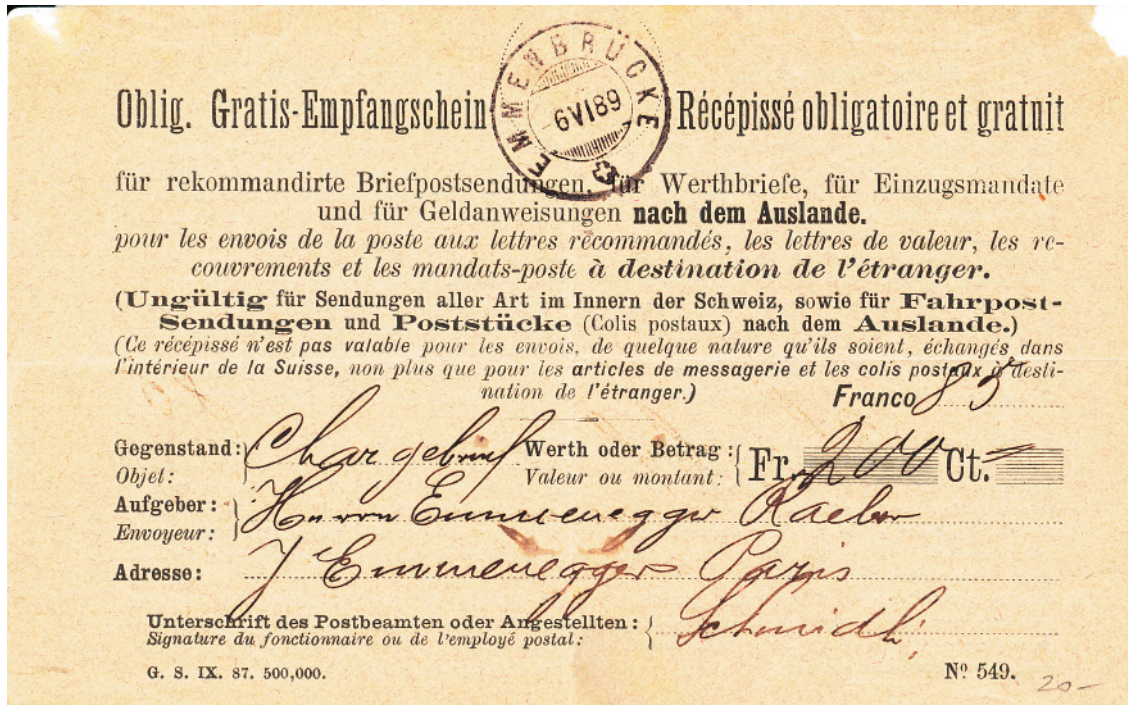 EMMENBRÜCKE
6 VI 89
Oblig. Gratis-Empfangschein Récépissé obligatoire et gratuit
für rekommandirte Briefpostsendungen, für Werthbriefe, für Einzugsmandate
und für Geldanweisungen nach dem Auslande.
pour les envois de la poste aux lettres recommandés, les lettres de valeur, les re-
couvrements et les mandats-poste à destination de l'étranger.
(Ungültig für Sendungen aller Art im Innern der Schweiz, sowie für Fahrpost-
Sendungen und Poststücke (Colis postaux) nach dem Auslande.)
(Ce récépissé n'est pas valable pour les envois, de quelque nature qu'ils soient, échangés dans
l'intérieur de la Suisse, non plus que pour les articles de messagerie et les colis postaux à desti-
nation de l'étranger.) Franco 85
Gegenstand: Chargebrief Werth oder Betrag: Fr. 200 Ct. =
Objet: Valeur ou montant:
Aufgeber: Herrn Emmenegger Raeber
Envoyeur:
Adresse: J Emmenegger Paris
Unterschrift des Postbeamten oder Angestellten: Schmidli
Signature du fonctionnaire ou de l'employé postal:
G. S. IX. 87. 500,000. Nº 549.
20-